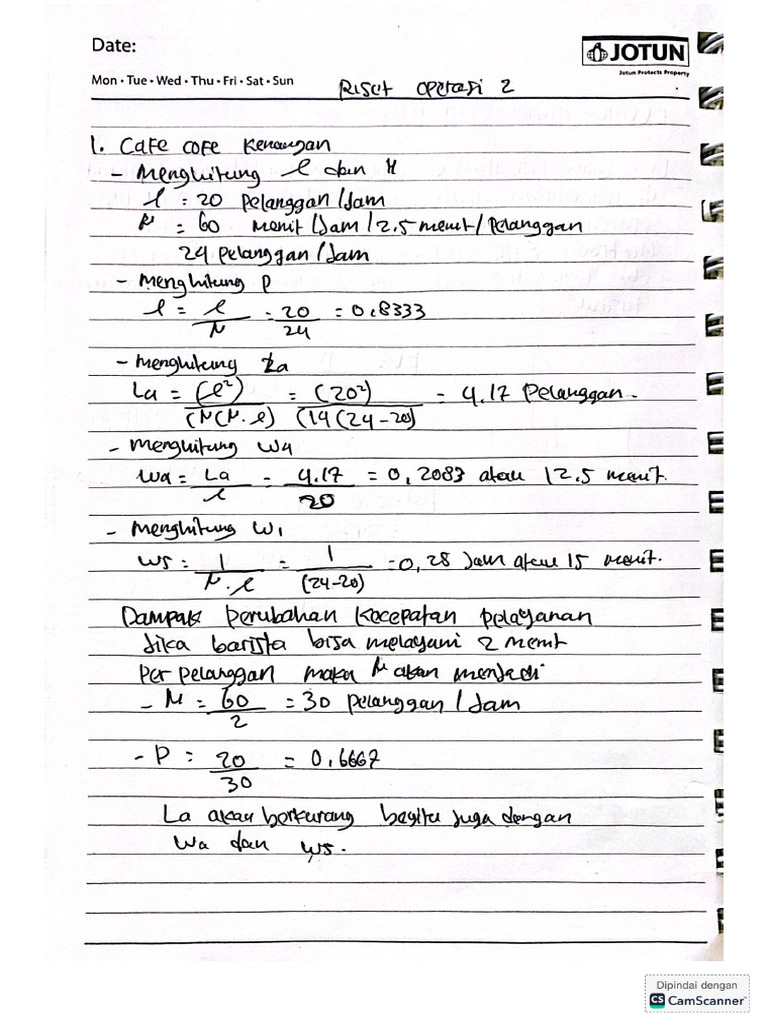 Date:
JOTUN
Jotun Protects Property
Mon • Tue • Wed • Thu • Fri • Sat • Sun
Riset operasi 2
1. Cafe cofe Kenangan
- Menghitung l dan μ
l = 20 Pelanggan / Jam
μ = 60 Menit / Jam / 2.5 menit / Pelanggan
24 Pelanggan / Jam
- Menghitung P
l = l/μ = 20/24 = 0,8333
- Menghitung La
La = (l²)/(μ(μ.l) = (20²)/(14(24-20) = 4.17 Pelanggan.
- Menghitung Wa
Wa = La/l = 4.17/20 = 0,2083 atau 12.5 menit.
- Menghitung W1
Ws = 1/μ.l = 1/(24-20) = 0,28 Jam atau 15 menit.
Dampak perubahan Kecepatan pelayanan
Jika barista bisa melayani 2 menit
Per pelanggan maka μ akan menjadi
- μ = 60/2 = 30 pelanggan / Jam
- P = 20/30 = 0,6667
La akan berkurang begitu juga dengan
Wa dan Ws.
Dipindai dengan
CS CamScanner